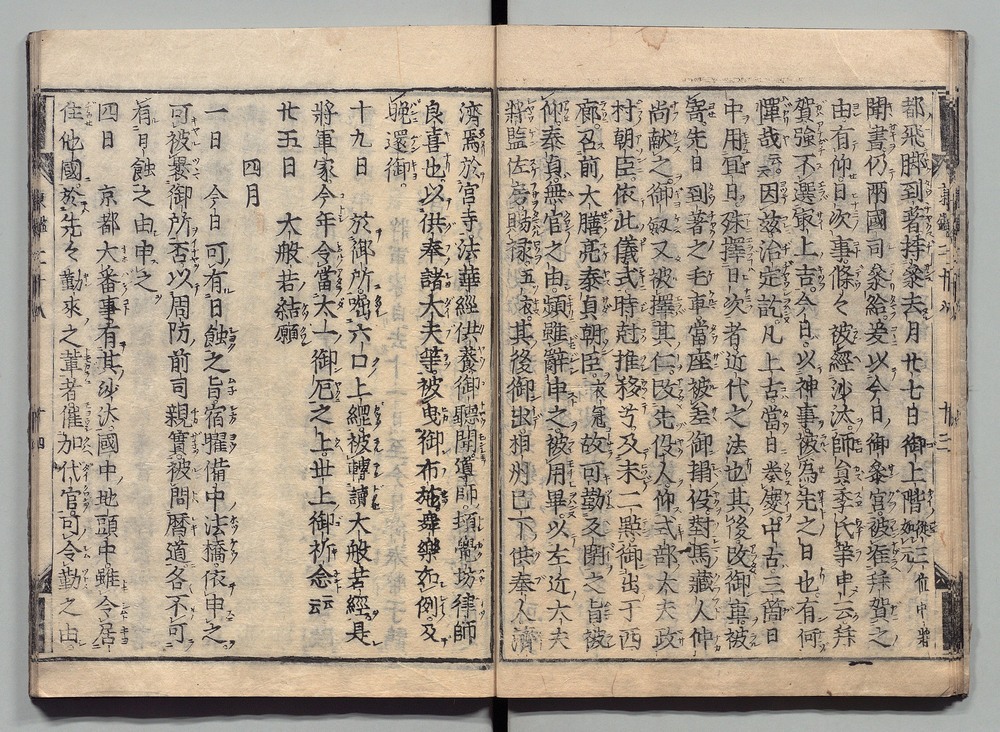 都飛脚到著持參去月廿七日御上階從三位中將如元
聞書仍兩國司參給爰以今日御參宮被准拜賀之
由有仰日次事條々被經沙汰師員季氏等申云拜
賀強不選最上吉今日以神事被為先之日也有何
憚哉云云因茲治定訖凡上古當日奏慶中古三箇日
中用宜日殊擇日次者近代之法也其後改御車被
寄先日到著之毛車當座被差御榻役對馬藏人仲
尚献之御歟又被擇其仁改先役人仰式部大夫政
村朝臣依此儀式時尅推移兮及未二點御出于西
廊召前大膳亮泰貞朝臣衣冠故可勤反閇之旨被
仰泰貞無官之由頻雖辭申之被用畢以左近大夫
將監佐房賜祿五衣其後御出相州已下供奉人濟
濟焉於宮寺法華經供養御聽聞導師頓覺坊律師
良喜也以供奉諸大夫等被曳御布施舞樂如例及
晚還御
十九日　於御所啒六口上綱被轉讀大般若經是
將軍家今年令當太一御厄之上世上御祈念云云
廿五日　大般若結願
四月
一日　今日可有日蝕之旨宿曜備中法橋依申之
可被褁御所否以周防前司親實被問曆道各不可
有日蝕之由申之
四日　京都大番事有其沙汰國中地頭中雖令居
住他國於先々勤來之輩者催加代官可令勤之由